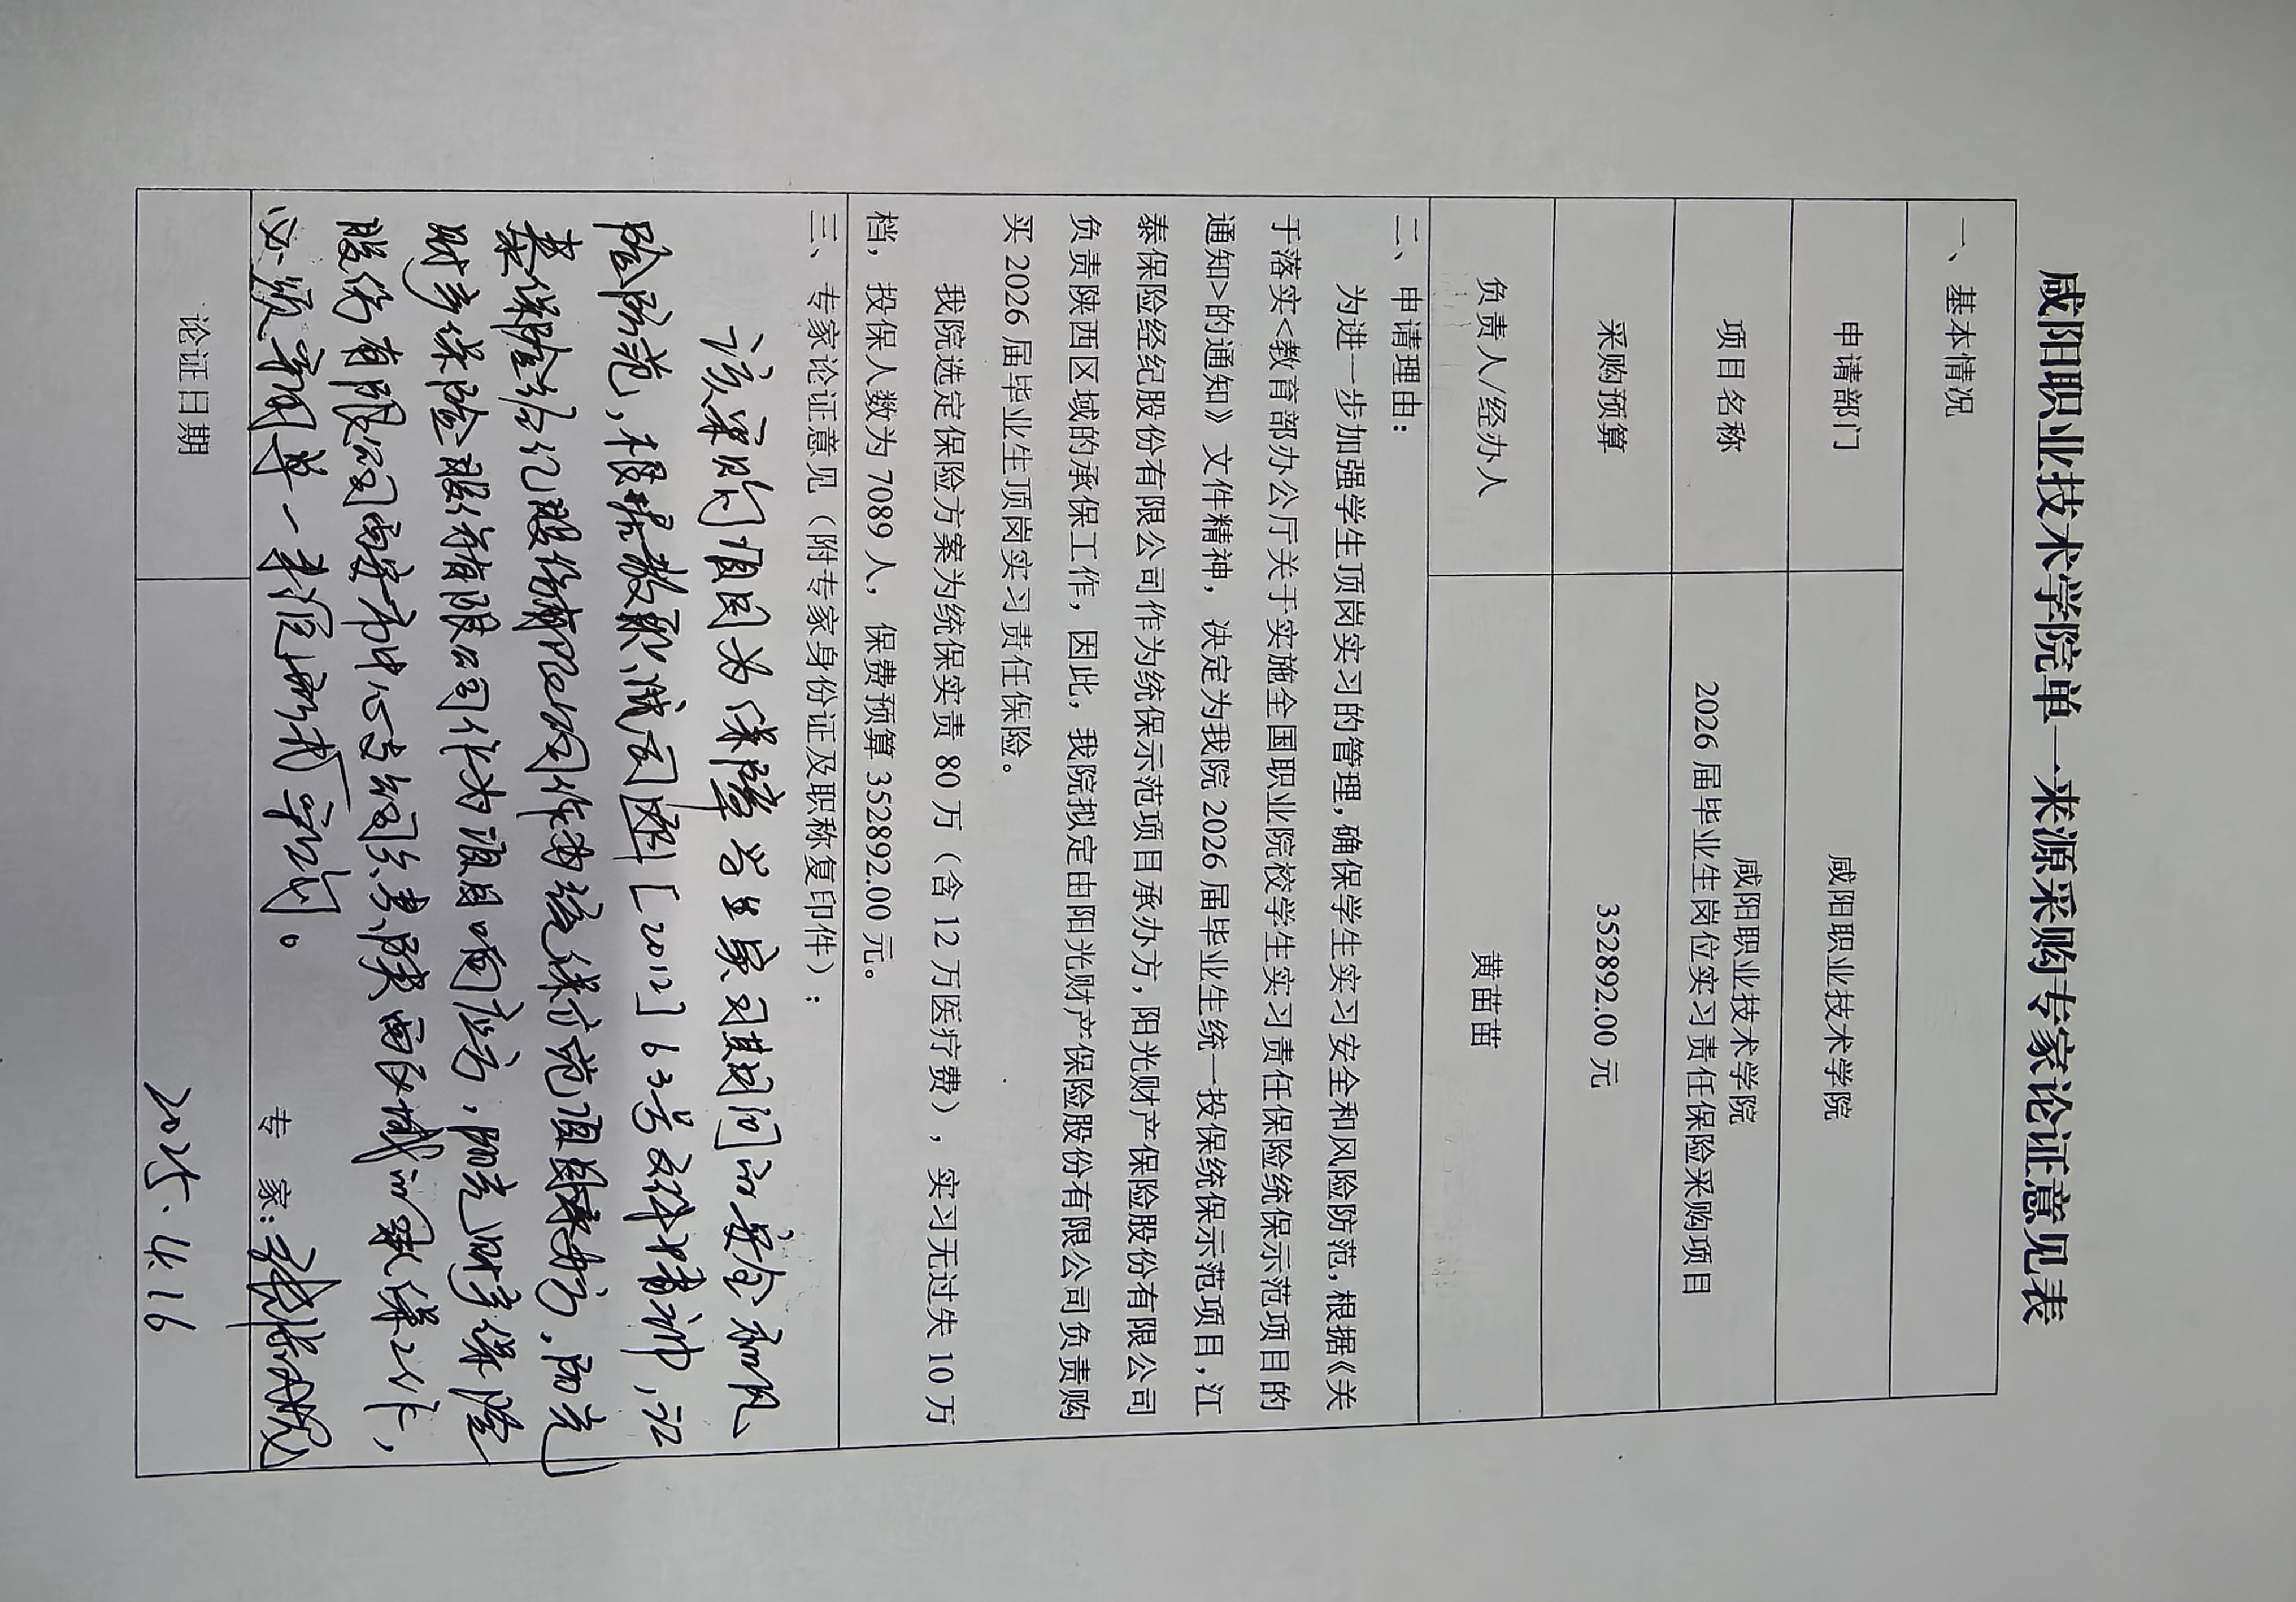 咸阳职业技术学院单一来源采购专家论证意见表
一、基本情况
申请部门 咸阳职业技术学院
项目名称 咸阳职业技术学院
2026 届毕业生岗位实习责任保险采购项目
采购预算 352892.00 元
负责人/经办人 黄苗苗
二、申请理由：
为进一步加强学生顶岗实习的管理，确保学生实习安全和风险防范，根据《关
于落实<教育部办公厅关于实施全国职业院校学生实习责任保险统保示范项目的
通知>的通知》文件精神，决定为我院 2026 届毕业生统一投保统保示范项目，江
泰保险经纪股份有限公司作为统保示范项目承办方，阳光财产保险股份有限公司
负责陕西区域的承保工作，因此，我院拟定由阳光财产保险股份有限公司负责购
买 2026 届毕业生顶岗实习责任保险。
我院选定保险方案为统保实责 80 万（含 12 万医疗费），实习无过失 10 万
档，投保人数为 7089 人，保费预算 352892.00 元。
三、专家论证意见（附专家身份证及职称复印件）：
该采购项目为保障学生实习期间的安全和风
险防范，根据教职成司函[2012]63号文件精神，江
泰保险经纪股份有限公司作为统保示范项目承办方，阳光
财产保险股份有限公司作为项目响应方，阳光财产保险
股份有限公司西安市中心支公司负责陕西区域的承保工作，
必须采用单一来源方式采购。
专 家：
论证日期 2025.4.16